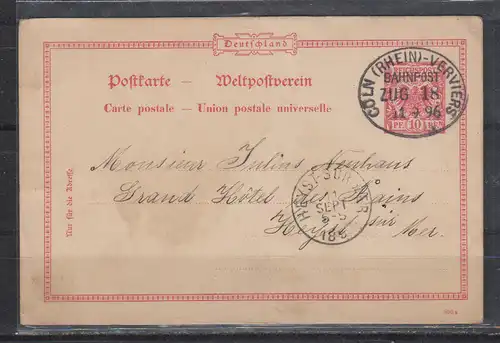 Deutschland
Postkarte — Weltpostverein
Carte postale — Union postale universelle
CÖLN (RHEIN)-VERVIERS
BAHNPOST
ZUG 18
11 9 96
10
Monsieur Julius Neuhaus
Grand Hôtel des Bains
Heyst sur Mer.
HEYST-SUR-MER
SEPT
Nur für die Adresse.